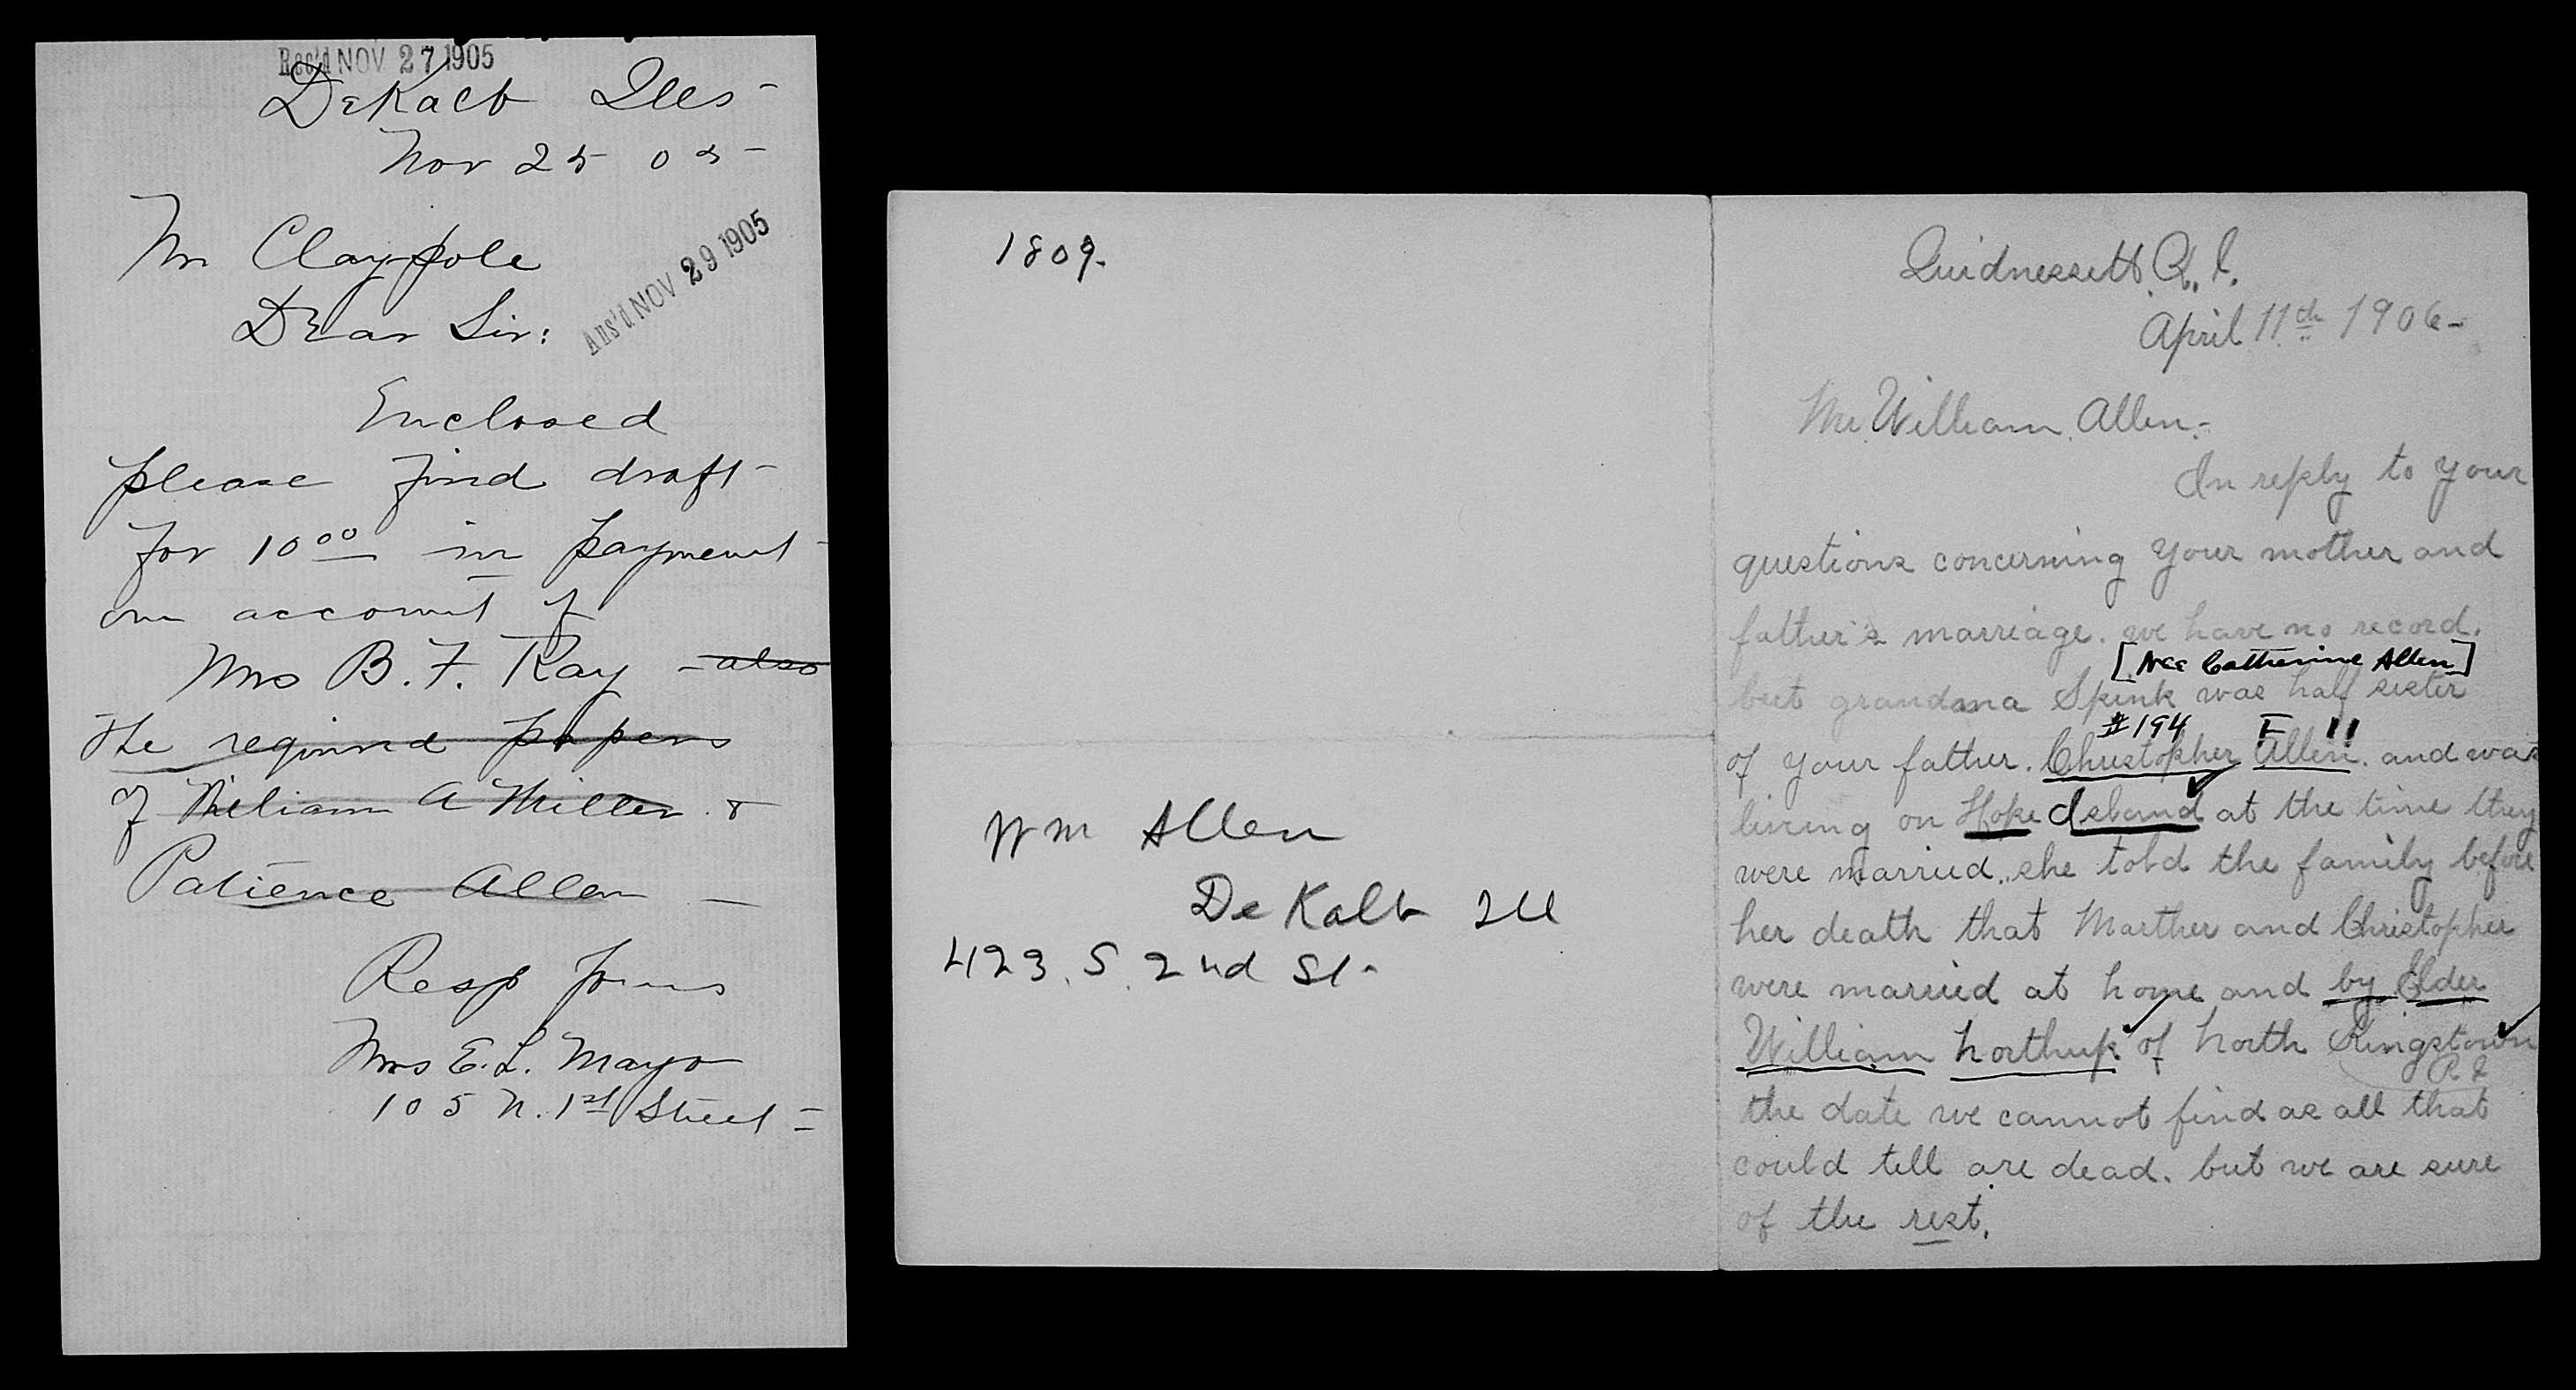 Rec'd NOV 27 1905
DeKalb Ills-
Nov 25 05-
Mr Claypole
Dear Sir:
Ans'd NOV 29 1905
Enclosed
please find draft
for 10 00 in payment
on account of
Mrs B. F. Ray - also
the required papers
of William A Miller &
Patience Allen -
Resp Yours
Mrs E. L. Mayo
105 N. 1st Street
1809.
Wm Allen
De Kalb Ill
423. S. 2nd St.
Quidnessett R. I.
April 11th 1906-
Mr. William Allen.-
In reply to your
questions concerning your mother and
father's marriage. we have no record.
[Nee Catherine Allen]
but grandma Spink was half sister
#194 F 11
of your father. Christopher Allen. and was
living on Hope Island at the time they
were married. she told the family before
her death that Marther and Christopher
were married at home and by Elder
William Northup. of North Kingstown
R I
the date we cannot find as all that
could tell are dead. but we are sure
of the rest.